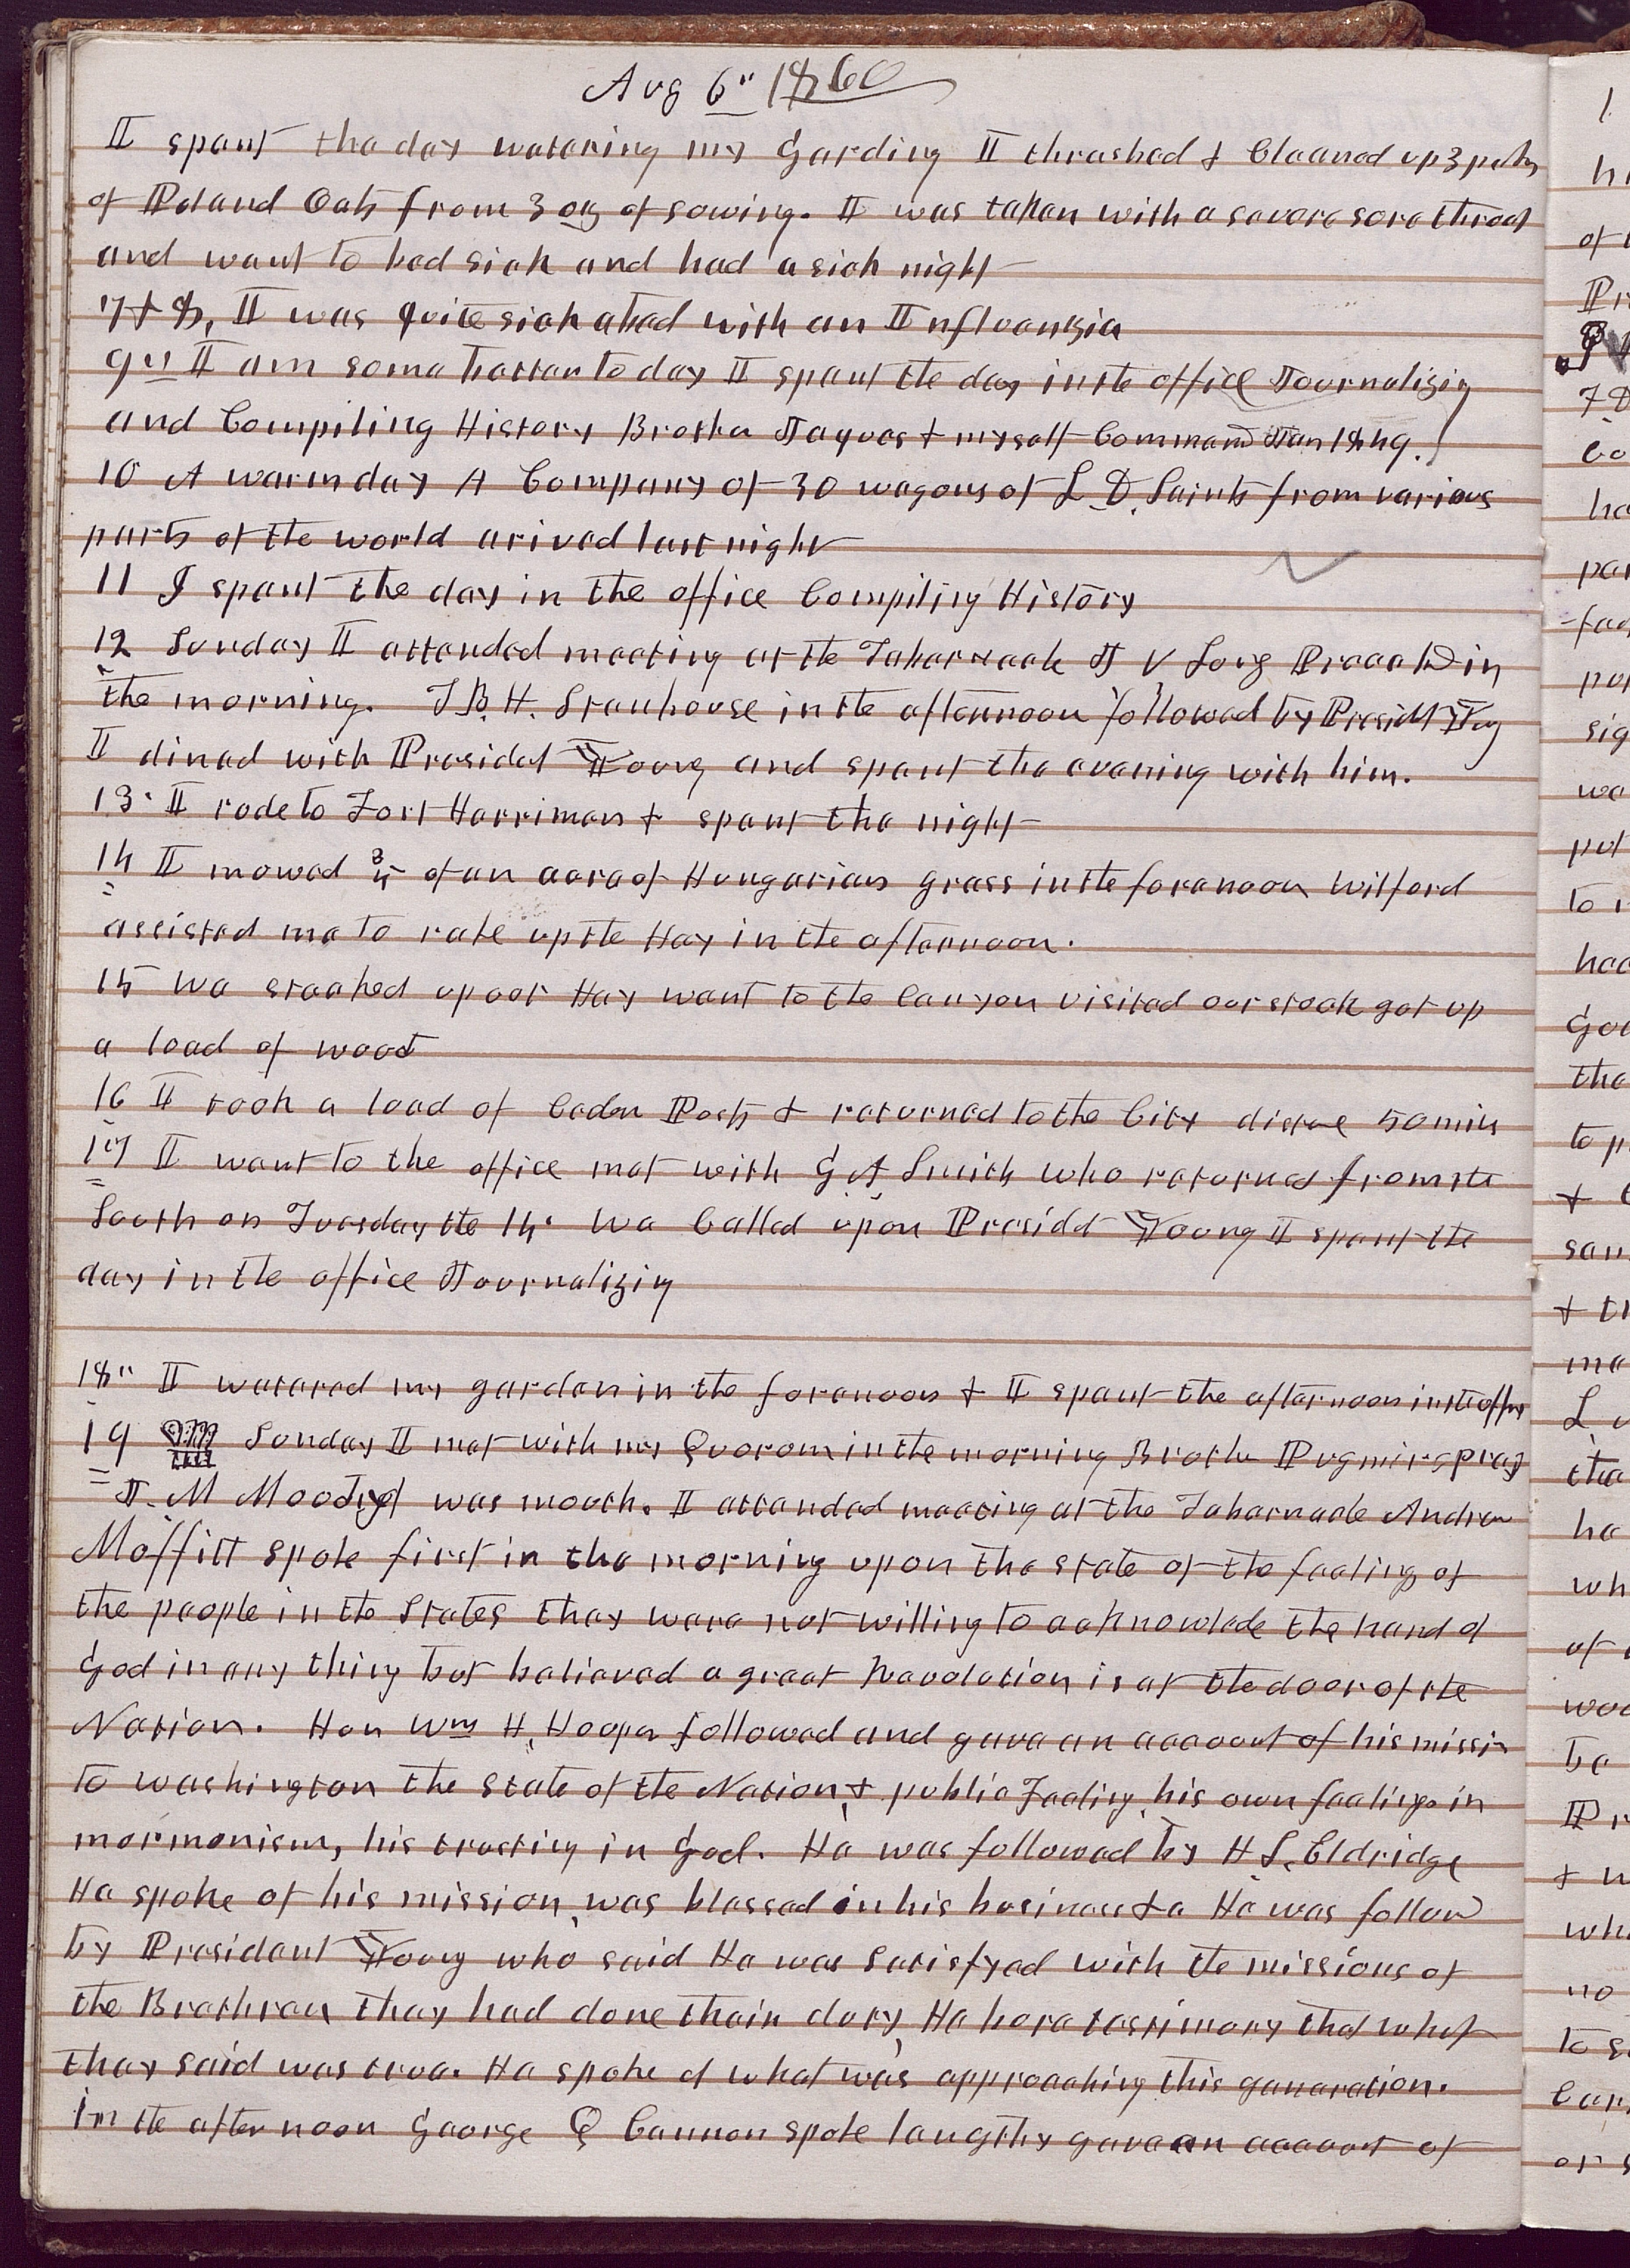 Aug 6" 1860
I spent the day watering my Garding I thrashed & Cleaned up 3 pecks
of Poland Oats from 3 oz of sowing. I was taken with a severe sore throat
and went to bed sick and had a sick night
7 & 8, I was quite sick abed with an Influenzia
9" I am some better to day I spent the day in the office Journalizing
and Compiling History Brother Jaques & myself Commend Jan 1849.
10 A warm day A Company of 30 wagons of L. D. Saints from various
parts of the world arived last night
11 I spent the day in the office Compiling History
12 Sunday I attended meeting at the Tabernacle J V Long Preached in
the morning. T. B. H. Stenhouse in the afternoon followed by Presidt Young
I dined with President Young and spent the evening with him.
13. I rode to Fort Harriman & spent the night
14 I mowed 3/4 of an acre of Hungarian grass in the forenoon Wilford
assisted me to rake up the Hay in the afternoon.
15 We stacked up our Hay went to the Canyon visited our stock got up
a load of wood
16 I took a load of Ceder Posts & returned to the City distance 50 miles
17 I went to the office met with G. A. Smith who returned from the
South on Tuesday the 14. We Called upon Presidet Young I spent the
day in the office Journalizing
18" I watered my garden in the forenoon & I spent the afternoon in the office
19 Sunday I met with my Quorom in the morning Brother Pugmire pray
J. M Moody was mouth. I attended meeting at the Tabernacle Andrew
Moffitt spoke first in the morning upon the state of the feelings of
the people in the States they were not willing to acknowlede the hand of
God in any thing but believed a great Revolution is at the door of the
Nation. Hon Wm H. Hooper followed and gave an account of his missin
to Washington the State of the Nation, & public Feeling, his own feelings in
mormonism, his trusting in God. He was followed by H S. Eldridge
He spoke of his mission, was blessed in his business &c He was followd
by President Young who said He was Satisfyed with the missions of
the Brethren they had done their duty, He bore testimony that what
they said was true. He spoke of what was approaching this generation.
In the after noon George Q Cannon spoke lengthy gave an account of